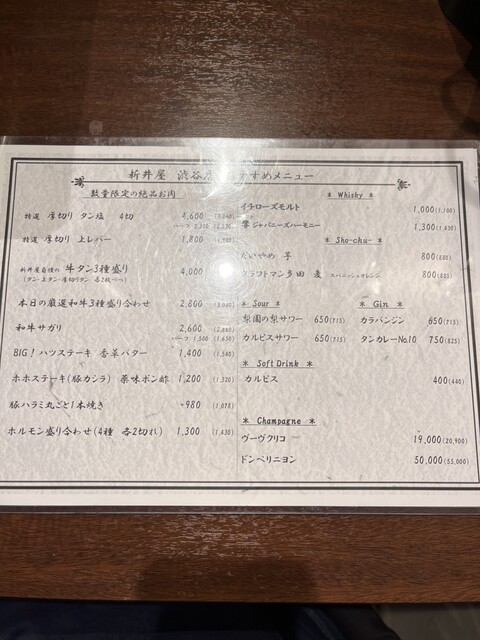 折井屋 渋谷店 すすめメニュー
数量限定の絶品お肉
特選 厚切り タン塩 4切 4,600
ハーフ 2,310
特選 厚切り 上レバー 1,800
折井屋自慢の 牛タン3種盛り 4,000
(タン・上タン・厚切りタン 各2枚づつ)
本日の厳選和牛3種盛り合わせ 2,800 (3,080)
和牛サガリ 2,600 (2,860)
ハーフ 1,500 (1,650)
BIG!ハツステーキ 香草バター 1,400 (1,540)
ホホステーキ(豚カシラ) 薬味ポン酢 1,200 (1,320)
豚ハラミ丸ごと1本焼き 980 (1,078)
ホルモン盛り合わせ(4種 各2切れ) 1,300 (1,430)
* Whisky *
イチローズモルト 1,000(1,100)
響 ジャパニーズハーモニー 1,300(1,430)
* Sho-chu- *
だいやめ 芋 800(880)
クラフトマン多田 麦 スパニッシュオレンジ 800(880)
* Sour *
梨園の梨サワー 650(715)
カルピスサワー 650(715)
* Gin *
カラバンジン 650(715)
タンカレーNo10 750(825)
* Soft Drink *
カルピス 400(440)
* Champagne *
ヴーヴクリコ 19,000(20,900)
ドンペリニヨン 50,000(55,000)